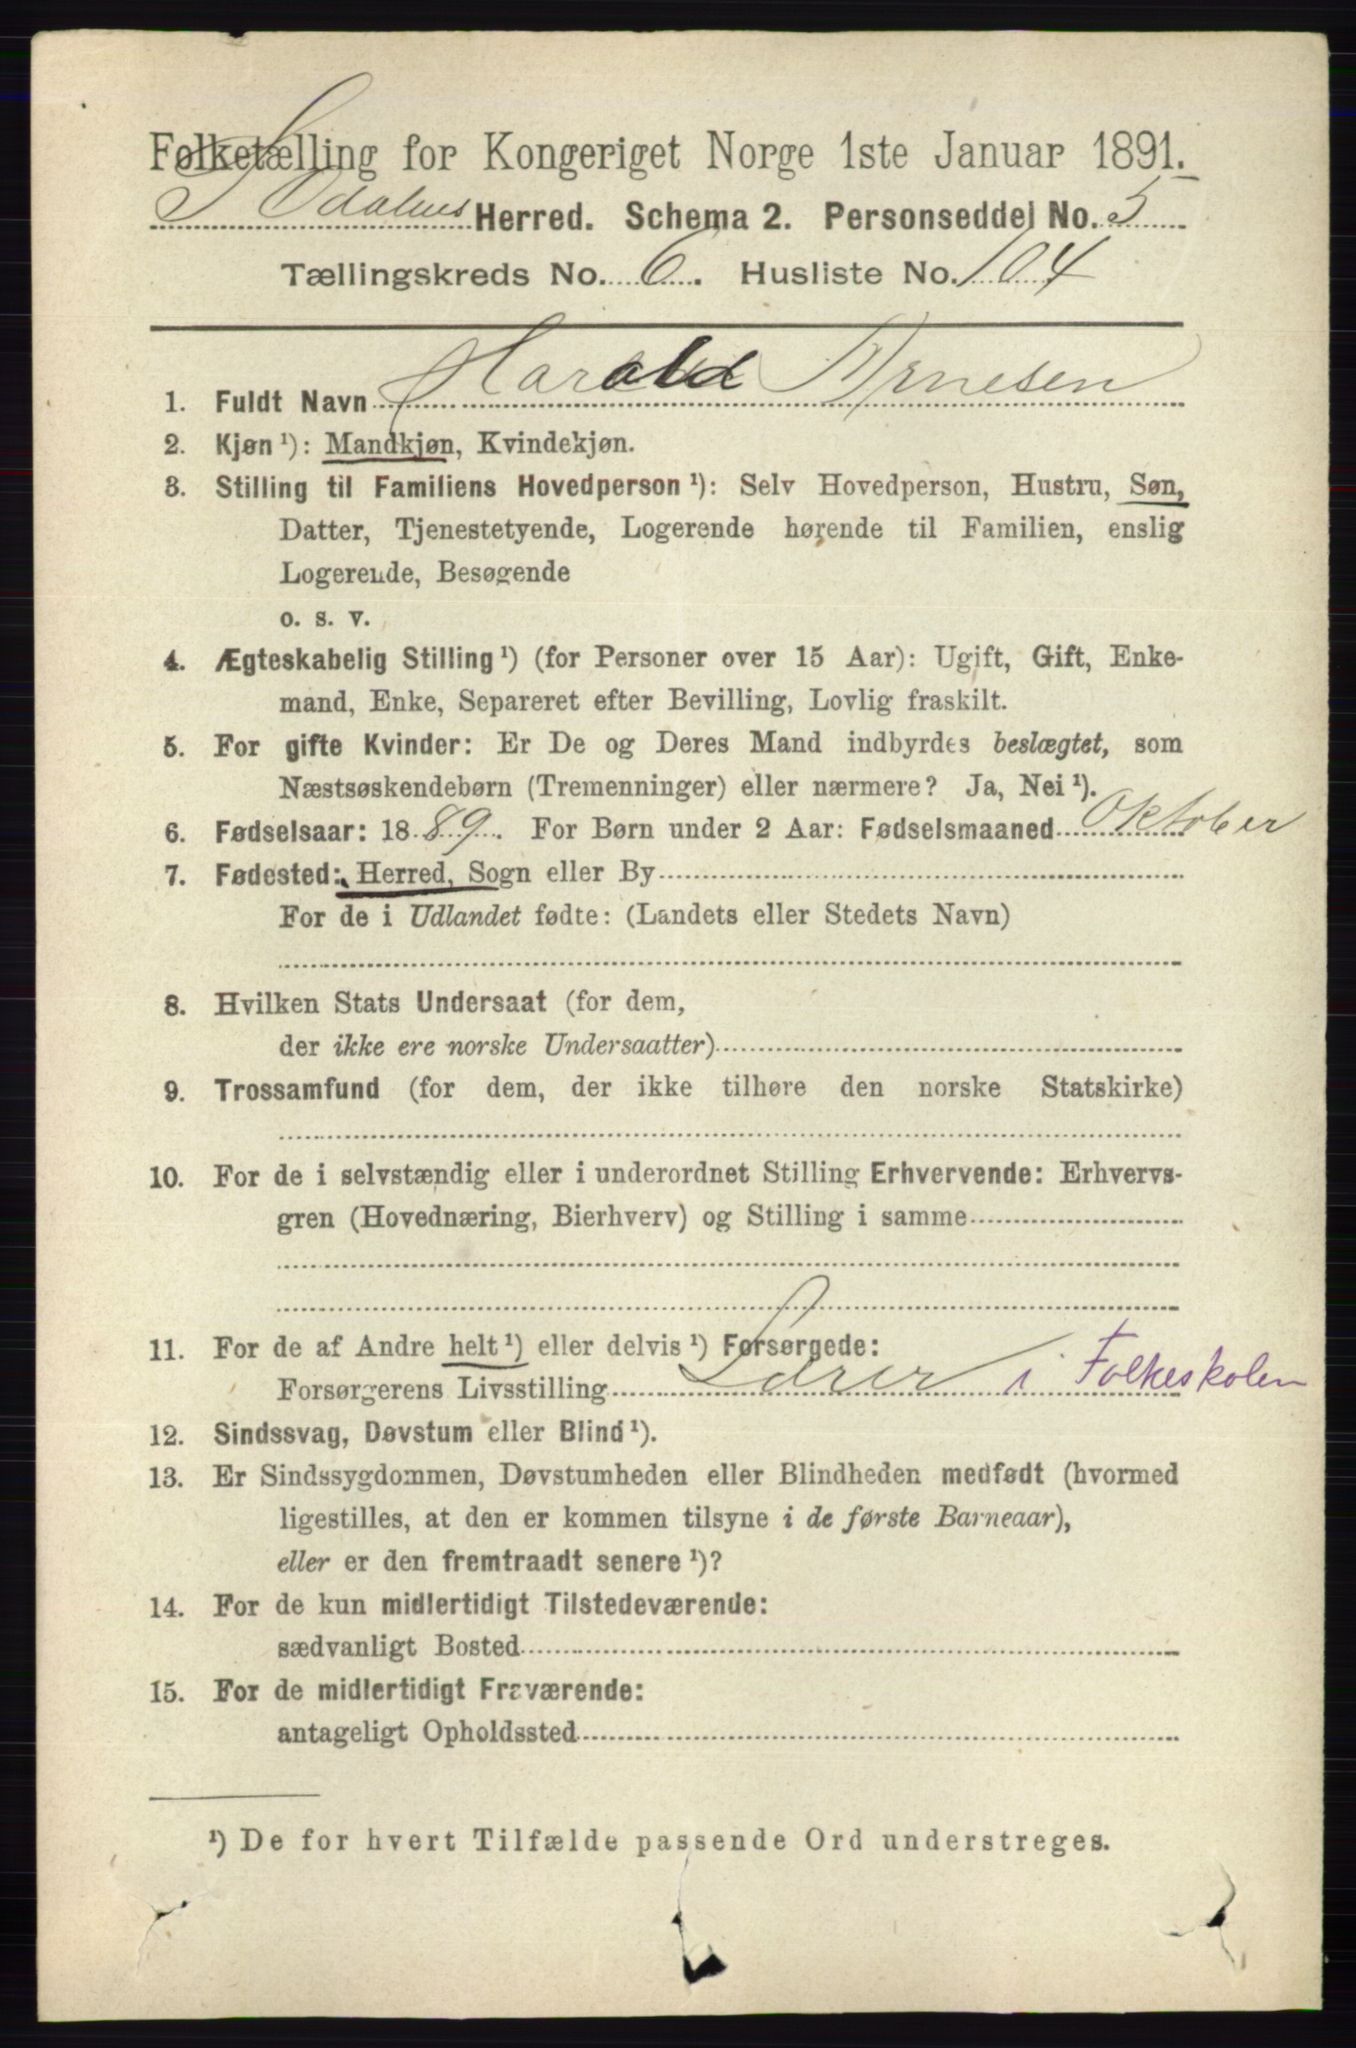 Folketælling for Kongeriget Norge 1ste Januar 1891.
S. Odalens Herred. Schema 2. Personseddel No. 5
Tællingskreds No. 6. Husliste No. 104
1. Fuldt Navn Harald Arnesen
2. Kjøn ¹): Mandkjøn, Kvindekjøn.
3. Stilling til Familiens Hovedperson ¹): Selv Hovedperson, Hustru, Søn,
Datter, Tjenestetyende, Logerende hørende til Familien, enslig
Logerende, Besøgende
o. s. v.
4. Ægteskabelig Stilling ¹) (for Personer over 15 Aar): Ugift, Gift, Enke-
mand, Enke, Separeret efter Bevilling, Lovlig fraskilt.
5. For gifte Kvinder: Er De og Deres Mand indbyrdes beslægtet, som
Næstsøskendebørn (Tremenninger) eller nærmere? Ja, Nei ¹).
6. Fødselsaar: 1889. For Børn under 2 Aar: Fødselsmaaned Oktober
7. Fødested: Herred, Sogn eller By
For de i Udlandet fødte: (Landets eller Stedets Navn)
8. Hvilken Stats Undersaat (for dem,
der ikke ere norske Undersaatter)
9. Trossamfund (for dem, der ikke tilhøre den norske Statskirke)
10. For de i selvstændig eller i underordnet Stilling Erhvervende: Erhvervs-
gren (Hovednæring, Bierhverv) og Stilling i samme
11. For de af Andre helt ¹) eller delvis ¹) Forsørgede:
Forsørgerens Livsstilling Lærer i Folkeskolen
12. Sindssvag, Døvstum eller Blind ¹).
13. Er Sindssygdommen, Døvstumheden eller Blindheden medfødt (hvormed
ligestilles, at den er kommen tilsyne i de første Barneaar),
eller er den fremtraadt senere ¹)?
14. For de kun midlertidigt Tilstedeværende:
sædvanligt Bosted
15. For de midlertidigt Fraværende:
antageligt Opholdssted
¹) De for hvert Tilfælde passende Ord understreges.